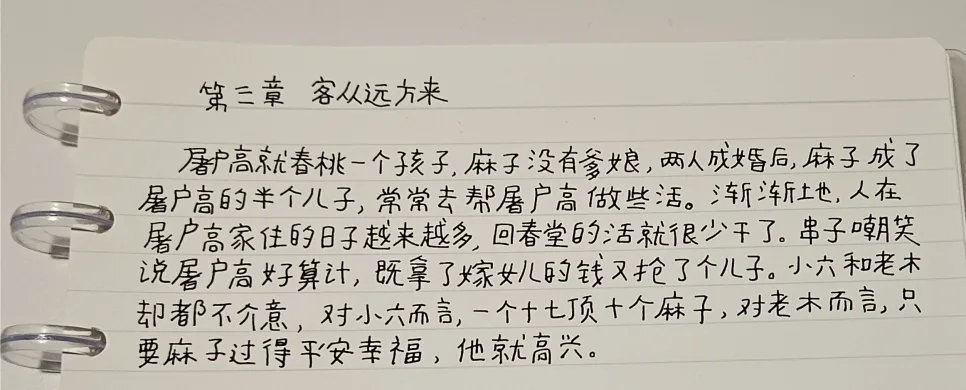 第三章 客从远方来
屠户高就春桃一个孩子,麻子没有爹娘,两人成婚后,麻子成了
屠户高的半个儿子,常常去帮屠户高做些活。渐渐地,人在
屠户高家住的日子越来越多,回春堂的活就很少干了。串子嘲笑
说屠户高好算计,既拿了嫁女儿的钱又抢了个儿子。小六和老木
却都不介意,对小六而言,一个十七顶十个麻子,对老木而言,只
要麻子过得平安幸福,他就高兴。